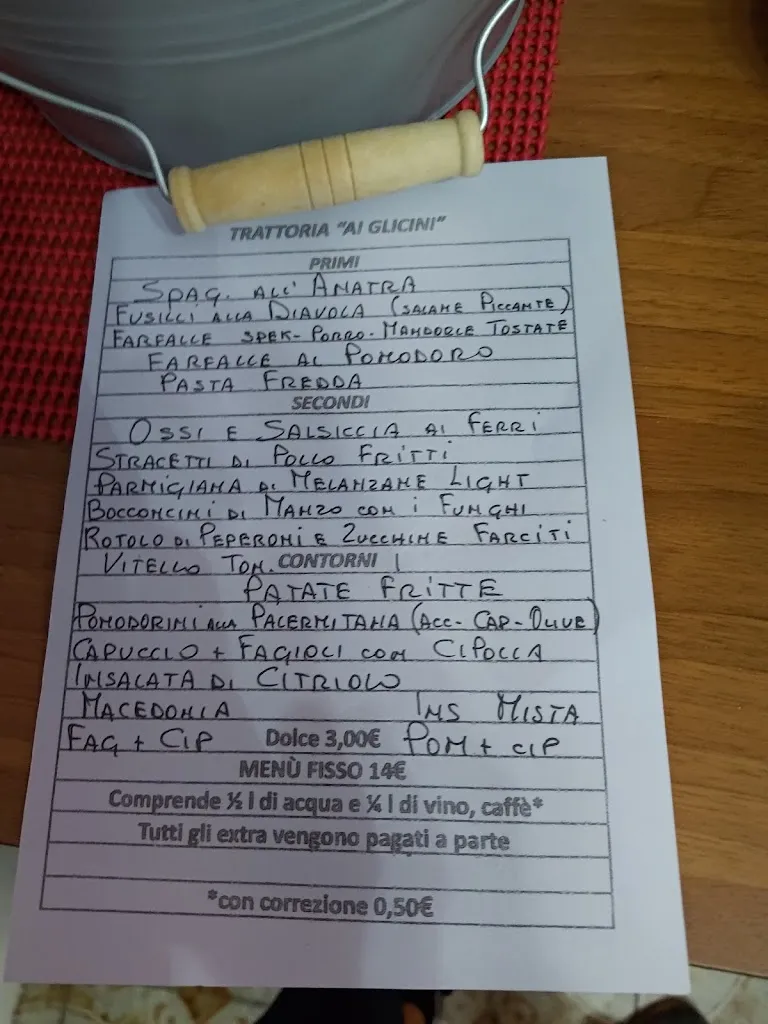 TRATTORIA "AI GLICINI"
PRIMI
SPAG. ALL' ANATRA
FUSILLI ALLA DIAVOLA (SALAME PICCANTE)
FARFALLE SPEK - PORRO - MANDORLE TOSTATE
FARFALLE AL POMODORO
PASTA FREDDA
SECONDI
OSSI E SALSICCIA AI FERRI
STRACETTI DI POLLO FRITTI
PARMIGIANA DI MELANZANE LIGHT
BOCCONCINI DI MANZO CON I FUNGHI
ROTOLO DI PEPERONI E ZUCCHINE FARCITI
VITELLO TON. CONTORNI
PATATE FRITTE
POMODORINI ALLA PALERMITANA (ACC - CAP - OLIVE)
CAPUCCIO + FAGIOLI CON CIPOLLA
INSALATA DI CITRIOLO
MACEDONIA INS MISTA
FAG + CIP Dolce 3,00€ POM + CIP
MENÙ FISSO 14€
Comprende ½ l di acqua e ¼ l di vino, caffè*
Tutti gli extra vengono pagati a parte
*con correzione 0,50€